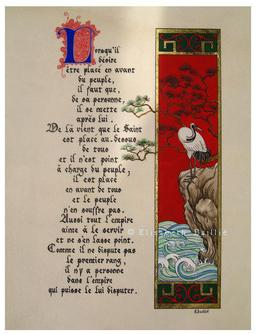 Lorsqu'il
désire
être placé en avant
du peuple,
il faut que,
de sa personne,
il se mette
après lui.
De là vient que le Saint
est placé au-dessus
de tous
et il n'est point
à charge du peuple;
il est placé
en avant de tous
et le peuple
n'en souffre pas.
Aussi tout l'empire
aime à le servir
et ne s'en lasse point.
Comme il ne dispute pas
le premier rang,
il n'y a personne
dans l'empire
qui puisse le lui disputer.
© Elisabeth Baillie